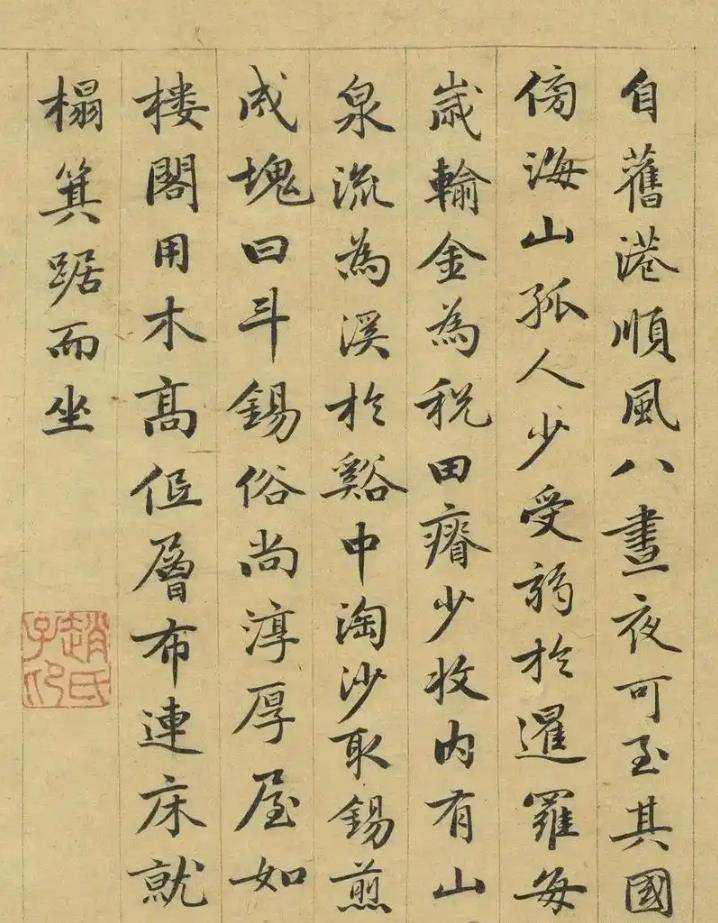 自舊港順風八晝夜可至其國
傍海山孤人少受弱於暹羅每
歲輸金為稅田瘠少收內有山
泉流為溪於谿中淘沙取錫煎
成塊曰斗錫俗尚淳厚屋如
楼閣用木高低層布連床就
榻箕踞而坐
趙氏子印